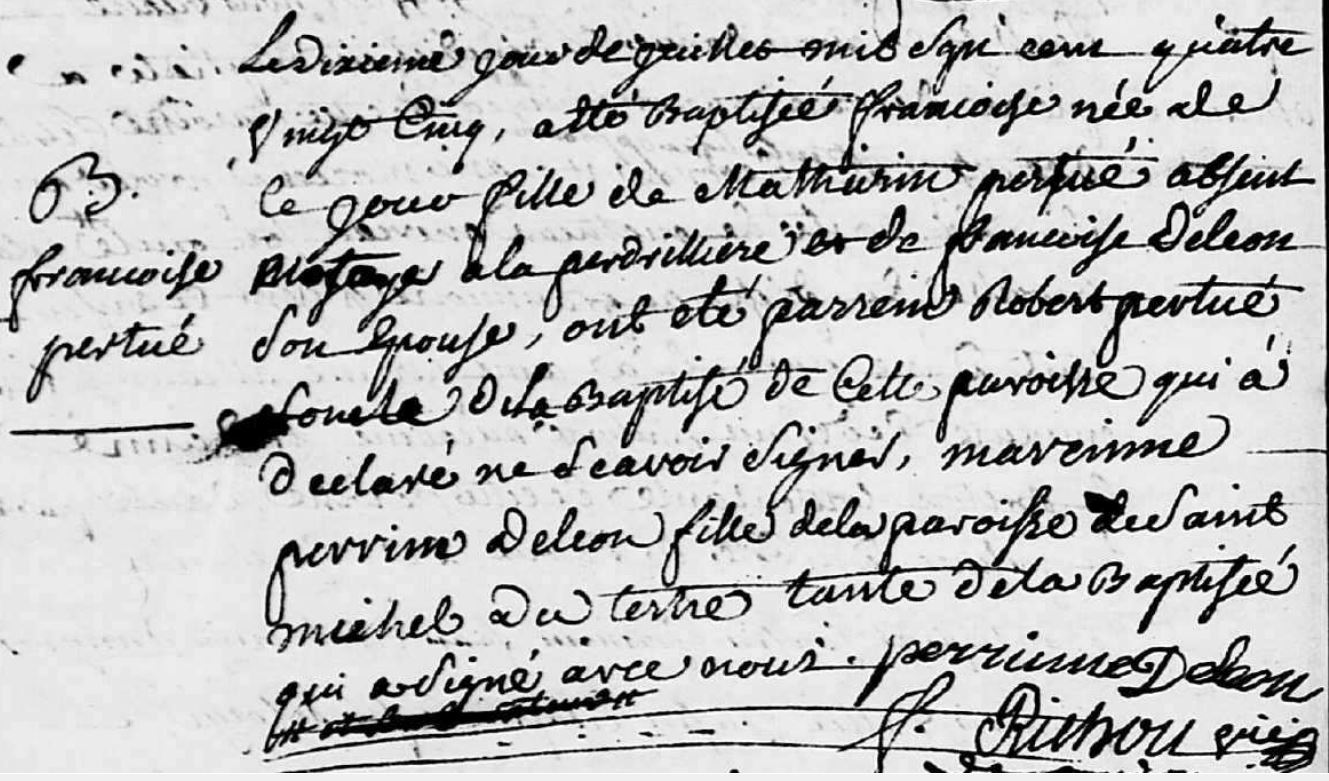 Le dixieme jour de juillet mil sept cent quatre
vingt Cinq, a été Baptisée francoise née de
B.
ce jour fille de Mathurin pertué absent
francoise
a la perdrilliere et de francoise Deleon
pertué
son Epouse, ont été parrein Robert pertué
oncle de la Baptisé de Cette paroisse qui a
declaré ne scavoir signer, mareinne
perrinne Deleon fille de la paroisse de Saint
michel du tertre tante de la Baptisée
qui a signé avec nous. perrinne Deleon
Richou